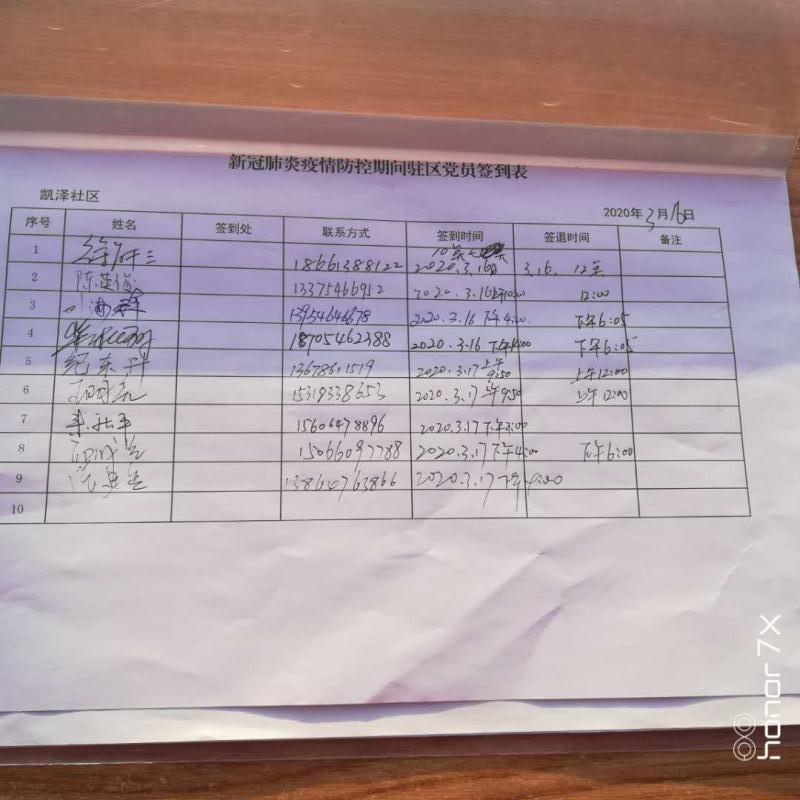 新冠肺炎疫情防控期间驻区党员签到表
凯泽社区 2020年3月16日
序号 姓名 签到处 联系方式 签到时间 签退时间 备注
1 18661388122 2020.3.16 3.16. 12
2 陈英俊 13375466952 2020.3.16 12:00
3 13954644678 2020.3.16 下午4:00 下午6:05
4 18705462388 2020.3.16 下午4:00 下午6:05
5 纪东升 13678611519 2020.3.17 上午9:50 上午12:00
6 15319338653 2020.3.17 上午9:50 上午12:00
7 15606478896 2020.3.17 下午
8 15066097788 2020.3.17 下午4:00 下午6:00
9 13864763866 2020.3.17 下午4:00
10
honor 7X